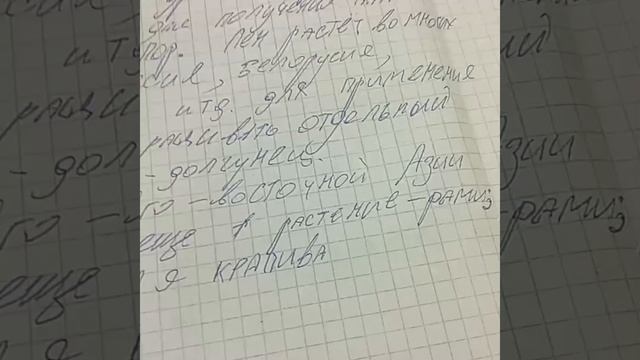 получения
пор. Лён растет во многих
сия, Белорусия,
и тд. для применения
ращивать отдельный
- долгунец.
го-восточной Азии
еще 1 растение-рами,
я крапива